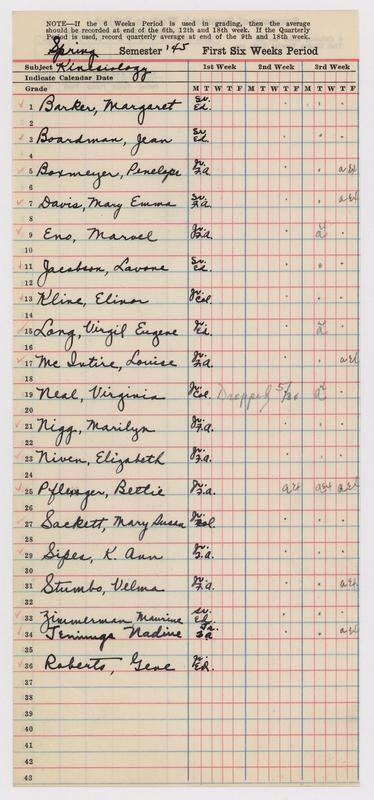 NOTE—If the 6 Weeks Period is used in grading, then the average
should be recorded at end of the 6th, 12th and 18th week. If the Quarterly
Period is used, record quarterly average at end of the 9th and 18th week.
Spring Semester '45 First Six Weeks Period
Subject Kinesiology 1st Week 2nd Week 3rd Week
Indicate Calendar Date
Grade M T W T F M T W T F M T W T F
1 Barker, Margaret Sr. Ed.
2
3 Boardman, Jean Sr. Ed.
4
5 Boxmeyer, Penelope Jr. F.A.
6
7 Davis, Mary Emma Sr. F.A.
8
9 Eno, Marvel Jr. F.A. a
10
11 Jacobson, Lavone Sr. Ed.
12
13 Kline, Elinor Jr. Col.
14
15 Long, Virgil Eugene Ed. a
16
17 Mc Intire, Louise Jr. F.A.
18
19 Neal, Virginia Jr. Col. Dropped 5/20 a
20
21 Nigg, Marilyn Jr. F.A.
22
23 Niven, Elizabeth Jr. F.A.
24
25 Pflenger, Bettie Jr. F.A.
26
27 Sackett, Mary Susan Jr. Col.
28
29 Sipes, K. Ann Jr. F.A.
30
31 Stumbo, Velma Jr. F.A.
32
33 Zimmerman Maurine Sr. Ed.
34 Jennings Nadine Jr. FA
35
36 Roberts, Gene Jr. Ed.
37
38
39
40
41
42
43